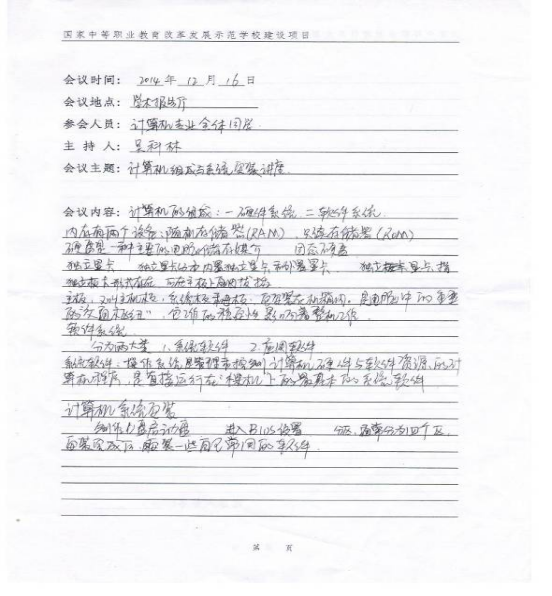 国家中等职业教育改革发展示范学校建设项目
会议时间: 2014 年 12 月 16 日
会议地点: 学术报告厅
参会人员: 计算机专业全体同学
主 持 人: 吴科林
会议主题: 计算机组成与系统安装讲座
会议内容: 计算机的组成:一硬件系统 二软件系统
内存有两个设备:随机存储器(RAM),只读存储器(RoM)
硬盘是一种主要的电脑存储媒介 固态硬盘
独立显卡 独立显卡分为内置独立显卡和外置显卡 独立显卡指
独立板卡形式存在 在主板上
主板,又叫主机板,系统板 安装在机箱内,是电脑中的重要
的 影响着整机工作
软件系统
分为两大类 1.系统软件 2.应用软件
系统软件:操作系统是管理和控制计算机硬件与软件资源的计
算机程序,是直接运行在“裸机”上的最基本的系统软件
计算机系统安装
制作U盘启动盘 进入BIOS设置 分区,通常分为四个区
安装完成后,安装一些自己常用的软件
第 页